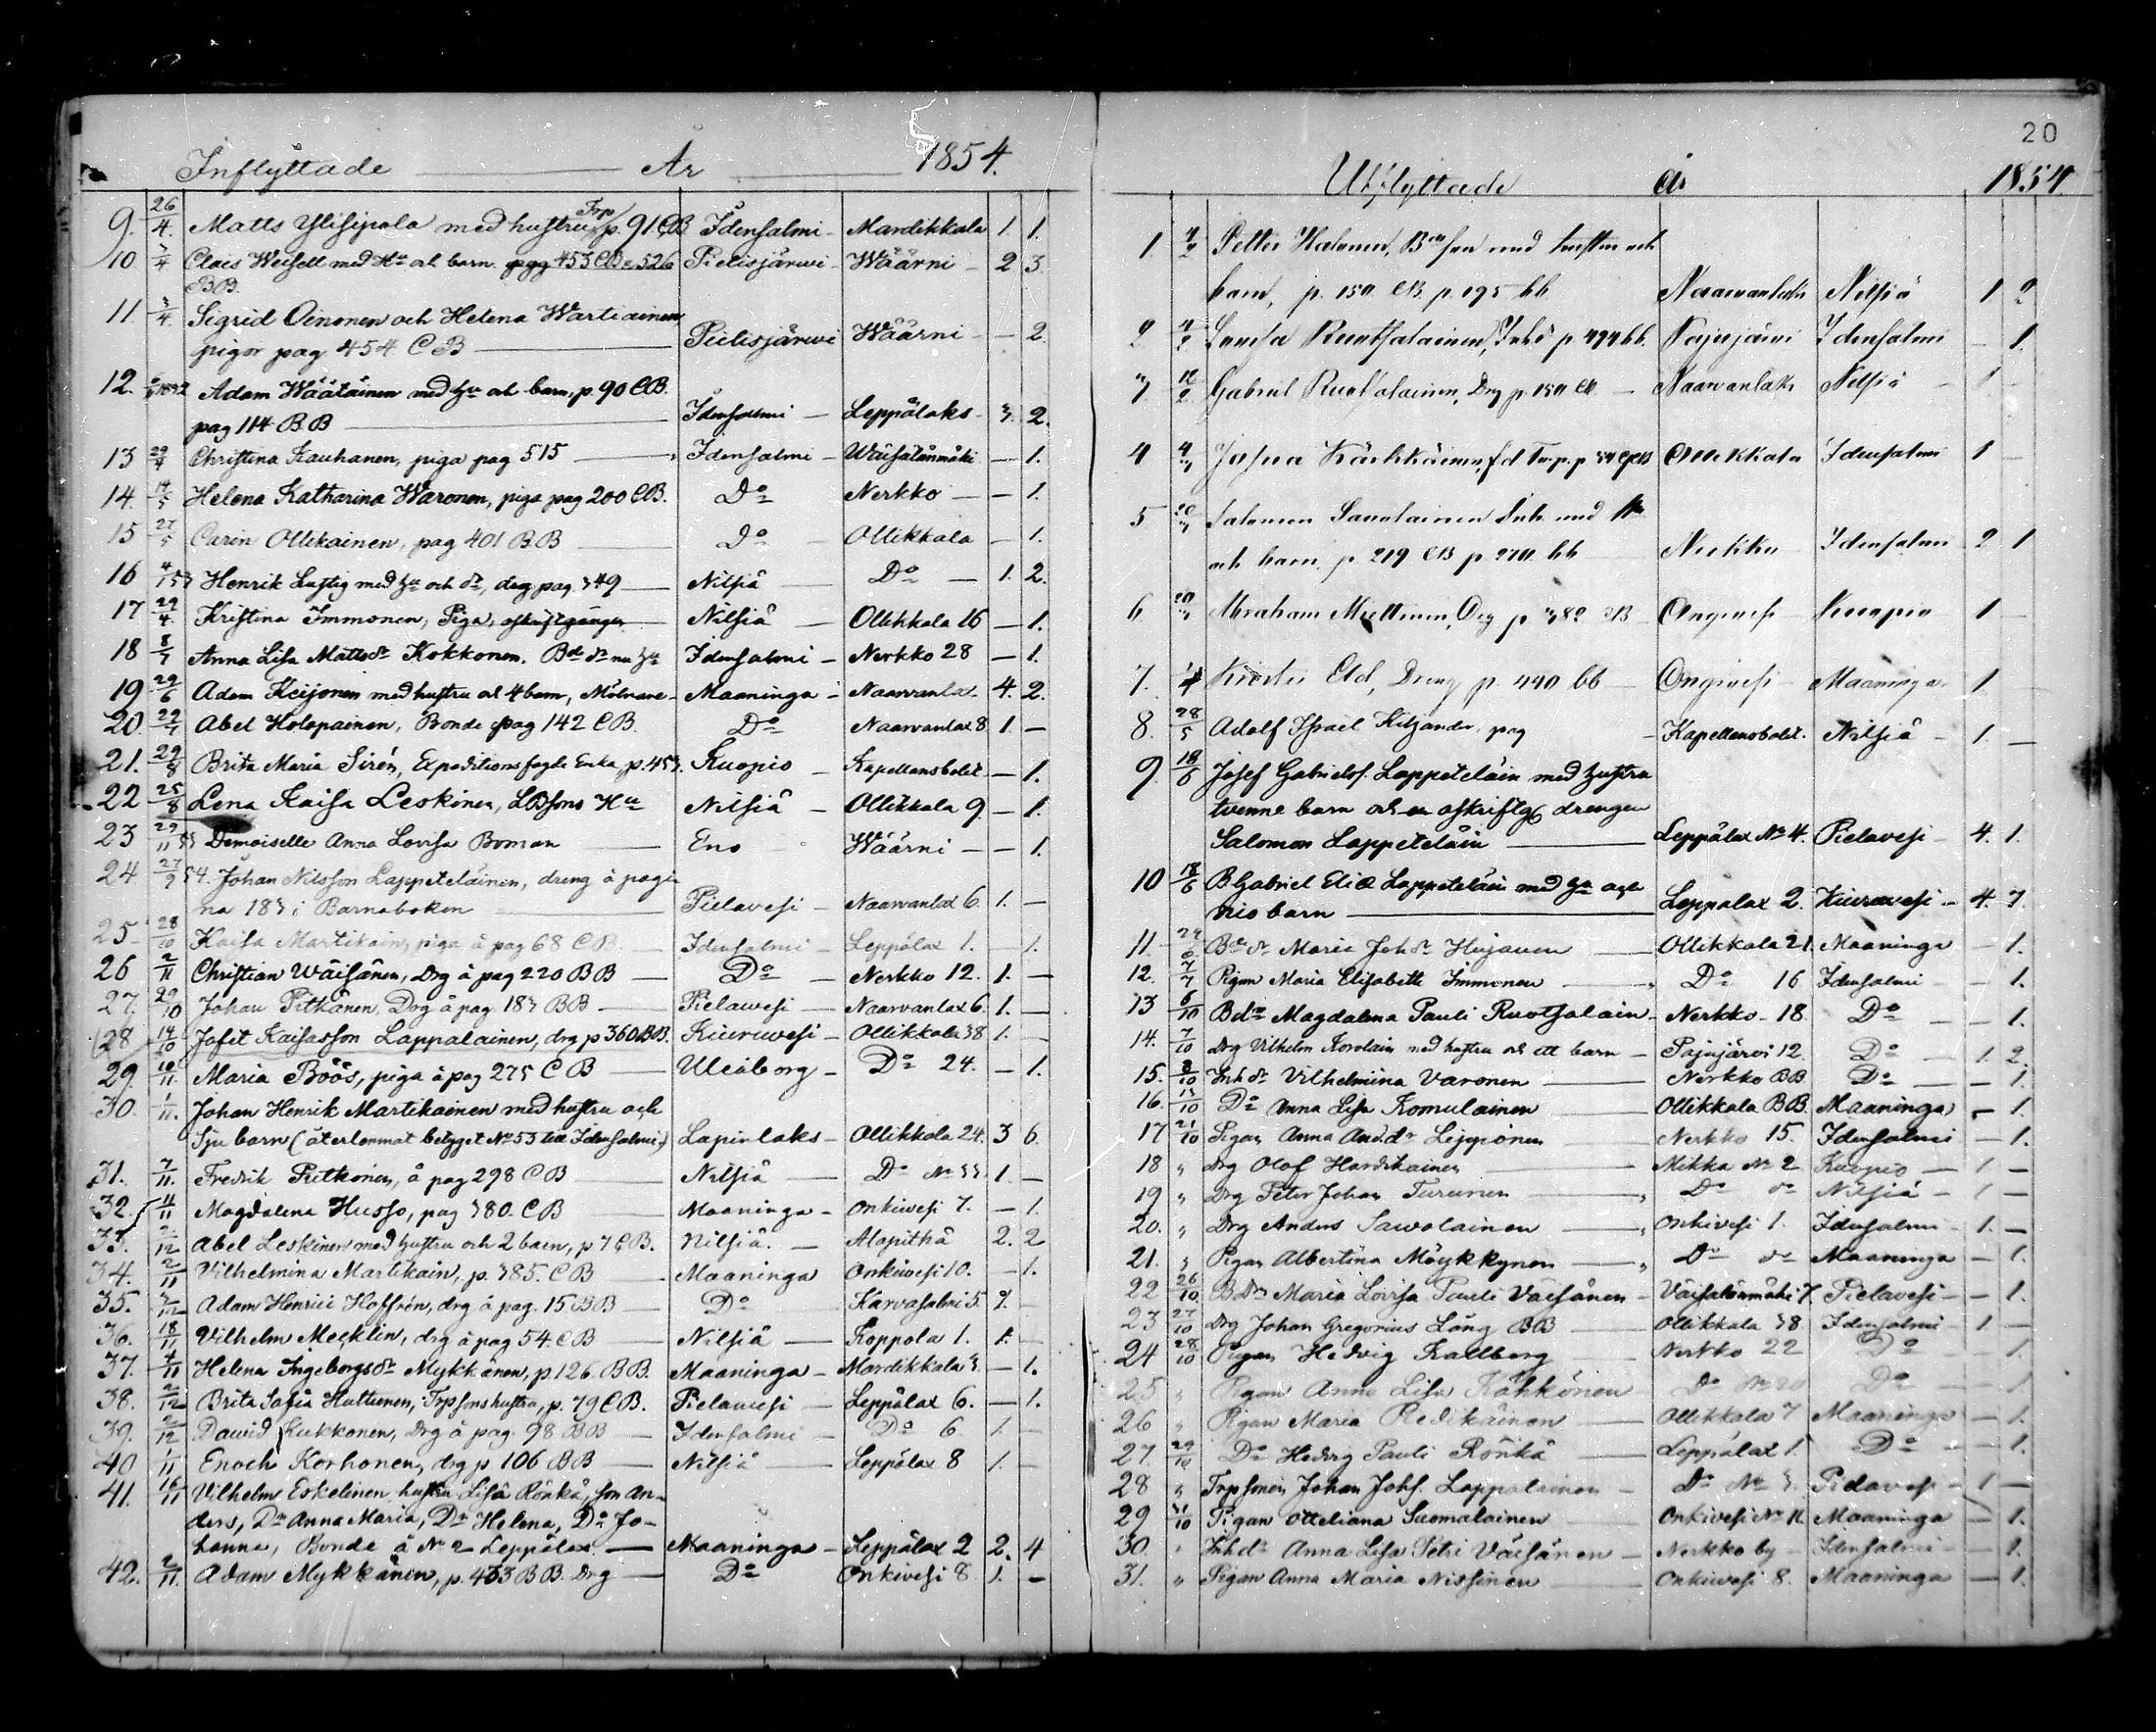 Inflyttade År 1854.
9. 26/4. Matts Ylisipola med hustru, Trp p. 91 CB Idensalmi - Mardikkala 1. 1.
10 3/4 Claes Weisell med Hu och barn. pag 453 CB o 526 Pielisjärwi - Wäärni - 2 3.
BB.
11. 3/4. Sigrid Oinonen och Helena Wartiainen
pigor pag 454 CB Pielisjärwi Wäärni - - 2.
12. Adam Wäätäinen med hu och barn, p. 90 CB.
pag 114 BB Idensalmi - Leppälaks - 3. 2.
13 29/4 Christina Kauhanen, piga pag 515 Idensalmi - Wäisälänmäki - 1.
14. 14/5 Helena Katharina Waronen, piga pag 200 CB. Do Nerkko - - 1.
15 27/5 Carin Ollikainen, pag 401 BB Do Ollikkala - 1.
16 Henrik Lustig med hu och dr, drg pag 349 Nilsiä Do - 1. 2.
17 29/4. Kristina Immonen, Piga, Nilsiä - Ollikkala 16 - 1.
18 8/7 Anna Lisa Mattsdr Kokkonen. Bde dr nu hu Idensalmi - Nerkko 28 - 1.
19 29/6 Adam Keijonen med hustru och 4 barn, Maaninga - Naarvanlax - 4. 2.
20. Abel Holopainen, Bonde pag 142 CB. Do Naarvanlax 8 1. -
21. 29/8 Brita Maria Sirén, Expeditionsfogde Enka, p. 453. Kuopio - Kapellansbolet - 1.
22 25/8 Lena Kaisa Leskinen, LBsons Hu Nilsiä - Ollikkala 9 - 1.
23 29/11 53 Demoiselle Anna Lovisa Boman Eno Wäärni - - 1.
24 27/9 54. Johan Nilsson Lappeteläinen, dreng å pagi
na 183 i Barnaboken Pielavesi - Naarvanlax 6. 1. -
25 - 28/10 Kaisa Martikain, piga å pag 68 CB Idensalmi - Leppälax 1. - 1.
26 2/11 Christian Wäisänen, Drg å pag 220 BB - Do - Nerkko 12. 1. -
27. 29/10 Johan Pitkänen, Drg å pag 183 BB - Pielawesi - Naarvanlax 6. 1. -
28 14/10 Josit Kaisasson Lappalainen, drg p 360 BB. Kiuruwesi - Ollikkala 38 1. -
29. 10/11. Maria Böös, piga å pag 275 CB - Uleåborg - Do 24. - 1.
30. 1/11. Johan Henrik Martikainen med hustru och
Sju barn (återkommat betyget No 53 till Idensalmi) Lapinlaks - Ollikkala 24. 3 6.
31. 7/11. Fredrik Pitkonen, å pag 298 CB Nilsiä - Do No 33. 1. -
32. 4/11 Magdalena Husso, pag 380. CB Maaninga - Onkiwesi 7. - 1.
33. 2/12 Abel Leskinen med hustru och 2 barn, p 7 CB. Nilsiä. - Alapitkä 2. 2
34. 2/11 Vilhelmina Martikain, p. 385. CB Maaninga Onkiwesi 10. - 1.
35. Adam Henrici Hoffrén, drg å pag. 15 BB Do Karvasalmi 5. 1. -
36. 18/11 Vilhelm Mecklin, drg å pag 54. CB Nilsiä - Koppola 1. 1. -
37. 4/11 Helena Ingeborgsdr Mykkänen, p. 126. BB. Maaninga - Mardikkala 3. - 1.
38. 2/12 Brita Sofia Huttunen, Trpsonshustru, p. 79 CB. Pielawesi - Leppälax 6. - 1.
39. 2/12 Dawid Kukkonen, Drg å pag. 98 BB - Idensalmi - Do 6 1. -
40 1/11 Enoch Korhonen, drg p 106 BB - Nilsiä - Leppälax 8 1. -
41. 16/11 Vilhelm Eskelinen hustru Lisa Rönkä, son An-
ders, Dr Anna Maria, Dr Helena, Dr Jo-
hanna, Bonde å No 2 Leppälax. - Maaninga - Leppälax 2 2. 4
42. 2/11. Adam Mykkänen, p. 433 BB. Drg - Do Onkivesi 8. 1. -
20
Utflyttade År 1854
1. Petter Halonen, Bdeson med hustru och
barn, p. 150 CB p. 195 bb Naarvanlaks Nilsiä 1 2
2 Lovisa Ruotsalainen, Inhd p 494 bb. Pajujärvi Idensalmi - 1.
3 12/2 Gabriel Ruotsalainen, Drg p. 150 CB - Naarvanlaks Nilsiä - 1 -
4 4/3 Josua Kärkkäinen, fd Torp. p Ollikkala Idensalmi 1 -
5 20/3 Salomon Savolainen Inh. med Hu
och barn p 219 CB p 270 bb Nerkko Idensalmi 2 1
6 20/3 Abraham Miettinen, Drg p 382 CB Ongivesi Kuopio 1 -
7. Dreng p. 440 bb - Ongivesi - Maaninga - 1 -
8. 28/5 Adolf Israel Kiljander, pag - Kapellansbolet. Nilsiä - 1. -
9. 18/6 Josef Gabrielss. Lappeteläin med hustru
tvenne barn och en drengen
Salomon Lappeteläin Leppälax No 4. Pielavesi - 4. 1.
10 18/6 B Gabriel Elia Lappeteläin med hu och
nio barn Leppälax 2. Kiuruvesi - 4. 7.
11. Bdedr Maria Johdr Hujanen Ollikkala 21. Maaninga - 1.
12. 7/7 Pigan Maria Elisabetth Immonen Do 16 Idensalmi - - 1.
13 6/10 Bdr Magdalena Pauli Ruotsalain - Nerkko - 18 Do - - 1.
14. 7/10 Drg Vilhelm med hustru och ett barn - Pajujärvi 12. Do - 1. 2.
15. 8/10 Inhdr Vilhelmina Varonen Nerkko BB Do - - 1.
16. 13/10 Do Anna Lisa Komulainen Ollikkala BB. Maaninga - 1.
17 21/10 Pigan Anna And.dr Nerkko 15. Idensalmi - 1.
18 " Drg Olof Hardikainen Mikka No 2 Kuopio - 1 -
19 " Drg Peter Johan Turunen Do do Nilsiä - 1 -
20. " Drg Anders Sawolainen Onkivesi 1. Idensalmi - 1. -
21. " Pigan Albertina Möykkynen Do do Maaninga - 1.
22 26/10 B Dr Maria Lovisa Pauli Väisänen - Väisälänmäki 7. Pielavesi - - 1.
23 27/10 Drg Johan Gregorius Lång BB Ollikkala 38 Idensalmi - 1 -
24 28/10 Pigan Hedvig Kallberg Nerkko 22 Do - 1
25 " Pigan Anna Lisa Kähkönen Do No 20 Do - 1
26 " Pigan Maria Redikäinen Ollikkala 7 Maaninga - 1.
27. 29/10 Do Hedvig Pauli Rönkä Leppälax 1. Do - 1.
28 " Trpsonen Johan Johs. Lappalainen - Do No 3. Pielavesi - 1 -
29 31/10 Pigan Otteliana Suomalainen Onkivesi No 11. Maaninga - 1.
30. " Inhdr Anna Lisa Petri Väisänen - Nerkko by - Idensalmi - 1.
31. " Pigan Anna Maria Nissinen Onkiwesi 8. Maaninga - 1.